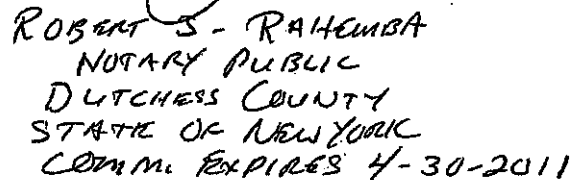 ROBERT S. RAHEMBA
NOTARY PUBLIC
DUTCHESS COUNTY
STATE OF NEW YORK
COMM. EXPIRES 4-30-2011